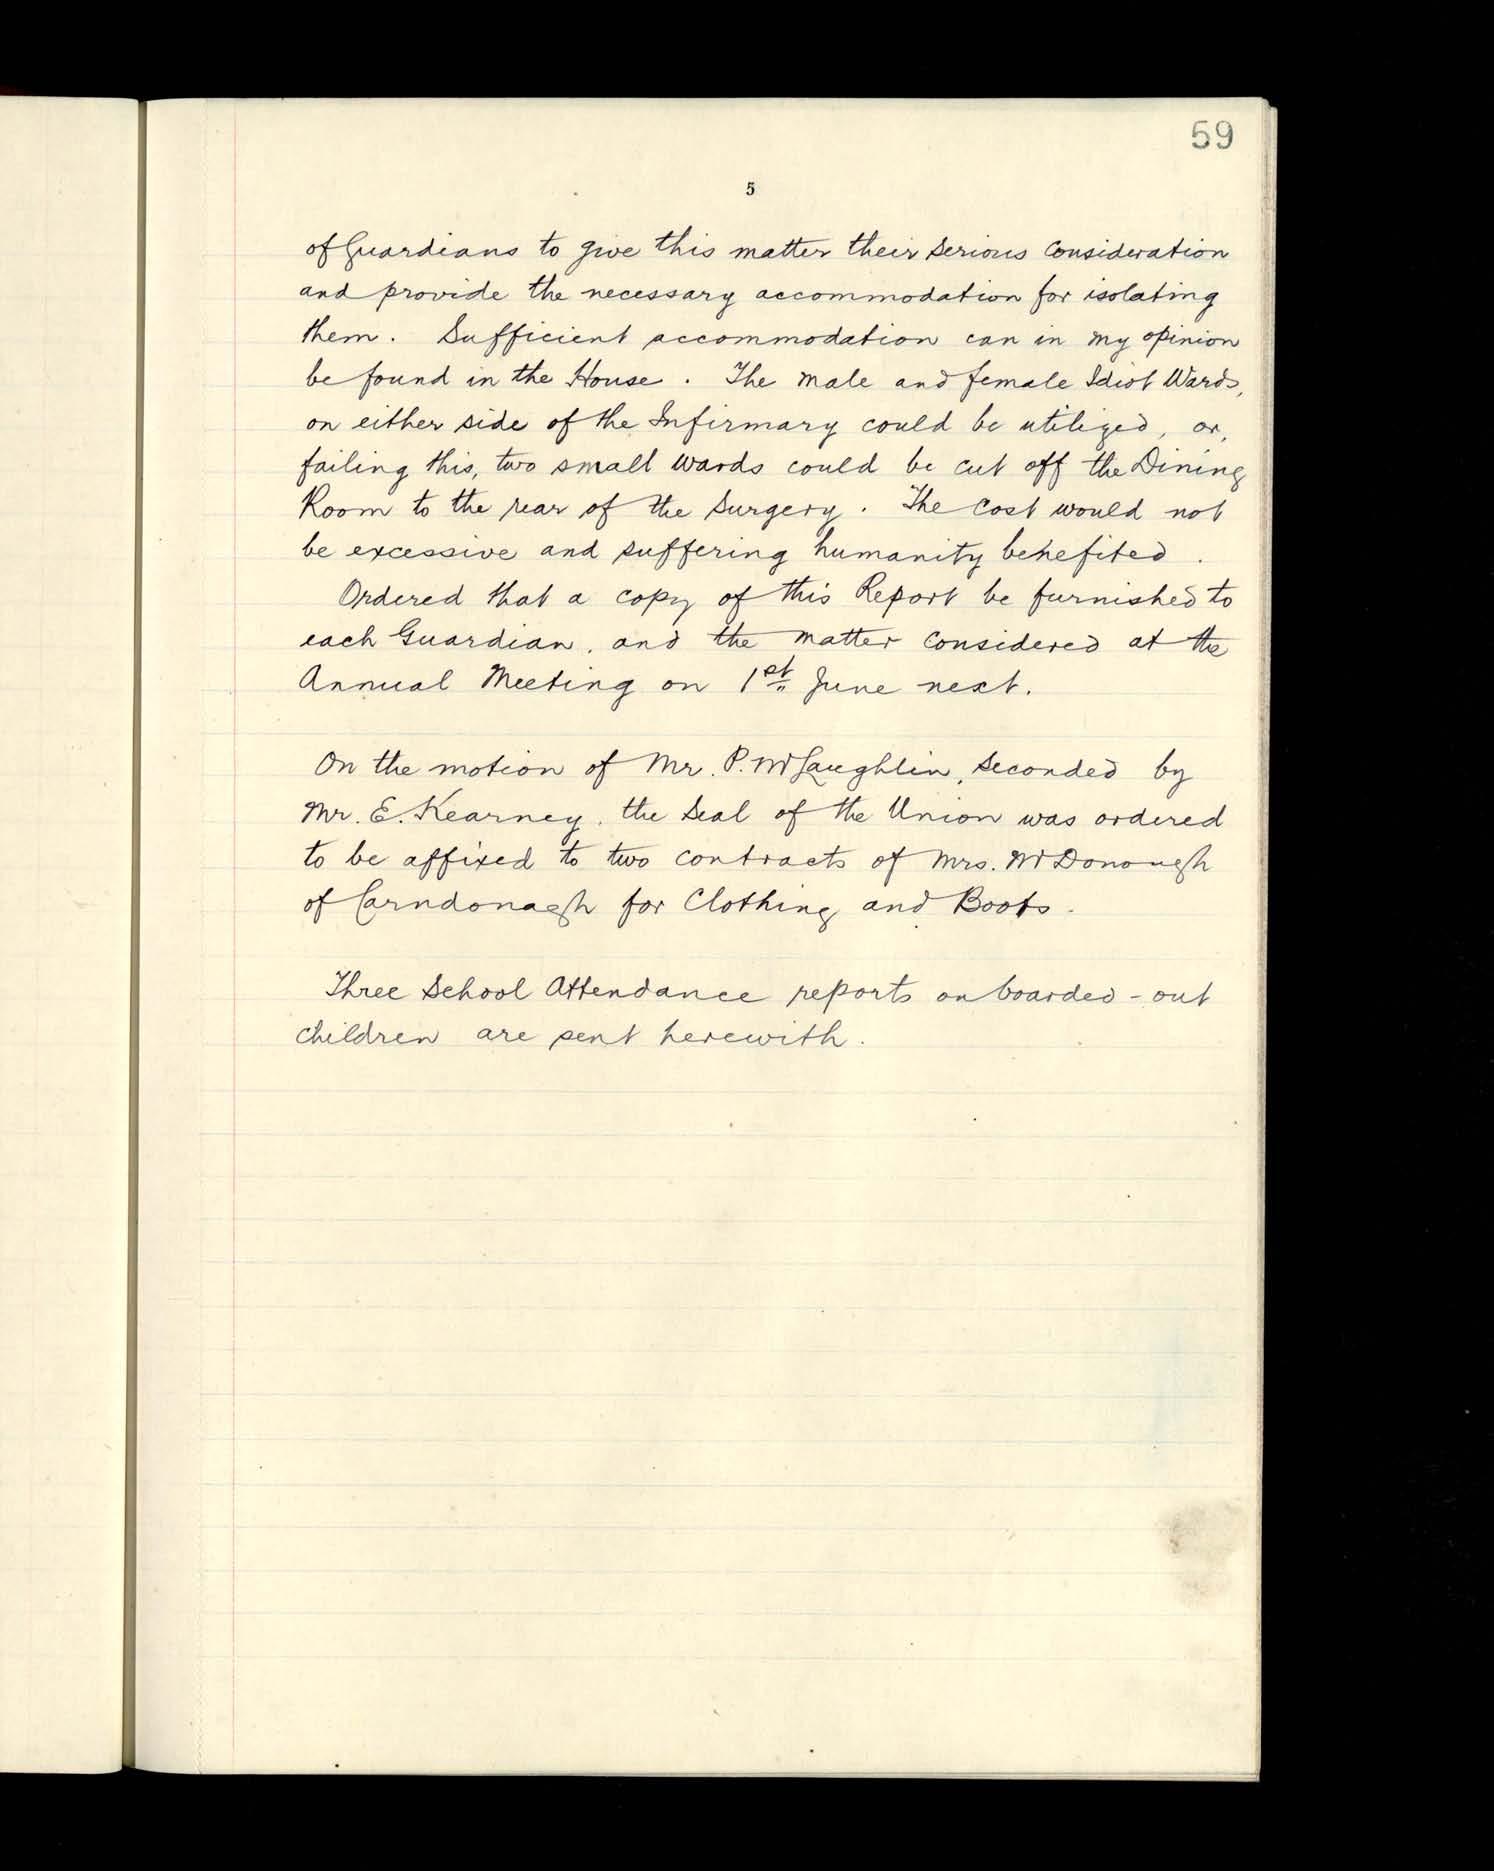 59
5
of Guardians to give this matter their serious consideration
and provide the necessary accommodation for isolating
them. Sufficient accommodation can in my opinion
be found in the House. The male and female Idiot Wards,
on either side of the Infirmary could be utilized, or,
failing this, two small wards could be cut off the Dining
Room to the rear of the Surgery. The cost would not
be excessive and suffering humanity benefited.
Ordered that a copy of this Report be furnished to
each Guardian, and the matter considered at the
Annual Meeting on 1st June next.
On the motion of Mr. P. McLaughlin, seconded by
Mr. E. Kearney, the Seal of the Union was ordered
to be affixed to two contracts of Mrs. McDonough
of Carndonagh for Clothing and Boots.
Three School Attendance reports on boarded-out
children are sent herewith.